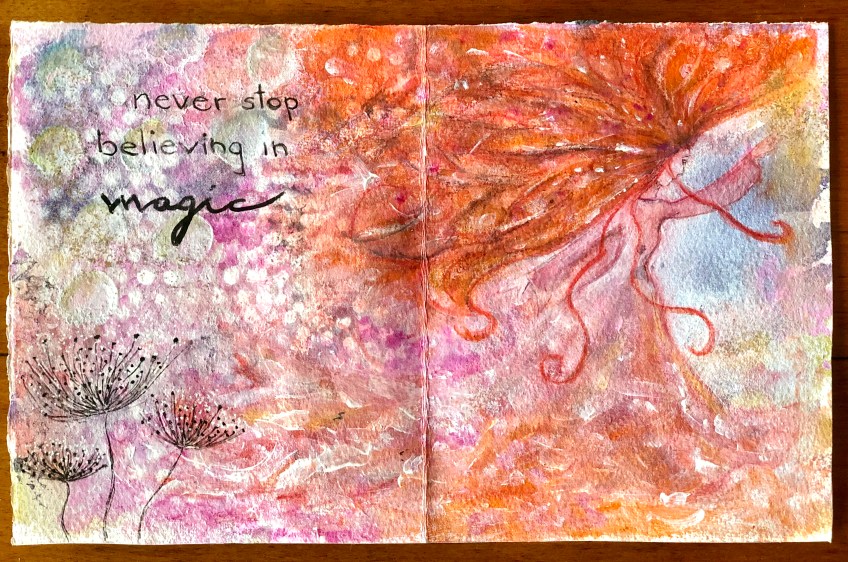 never stop
believing in
magic